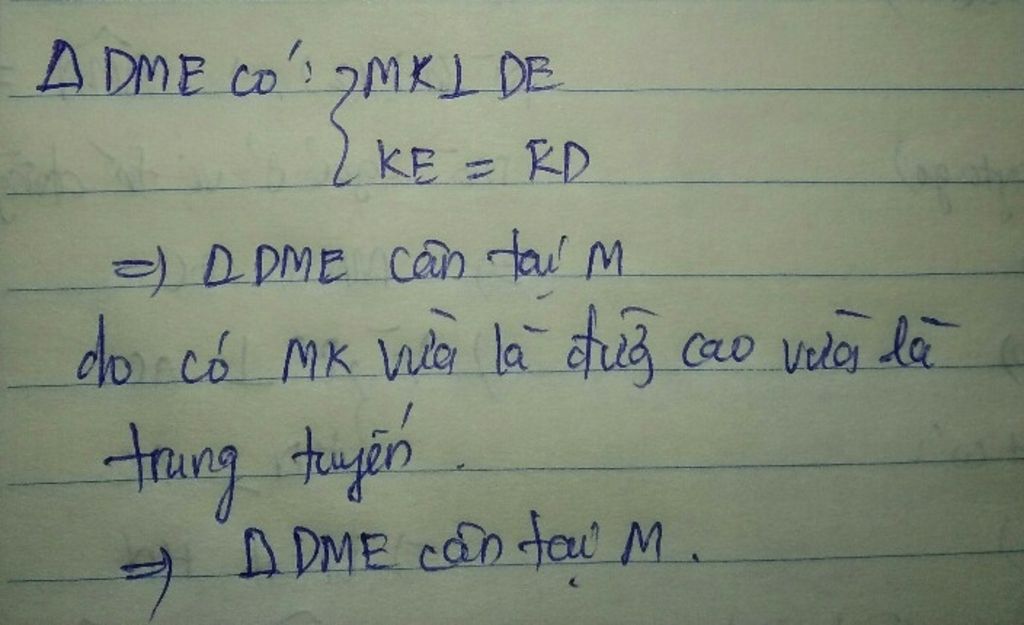 Δ DME có: { MK ⊥ DE
KE = KD
=> Δ DME cân tại M
do có MK vừa là đường cao vừa là
trung tuyến.
=> Δ DME cân tại M.